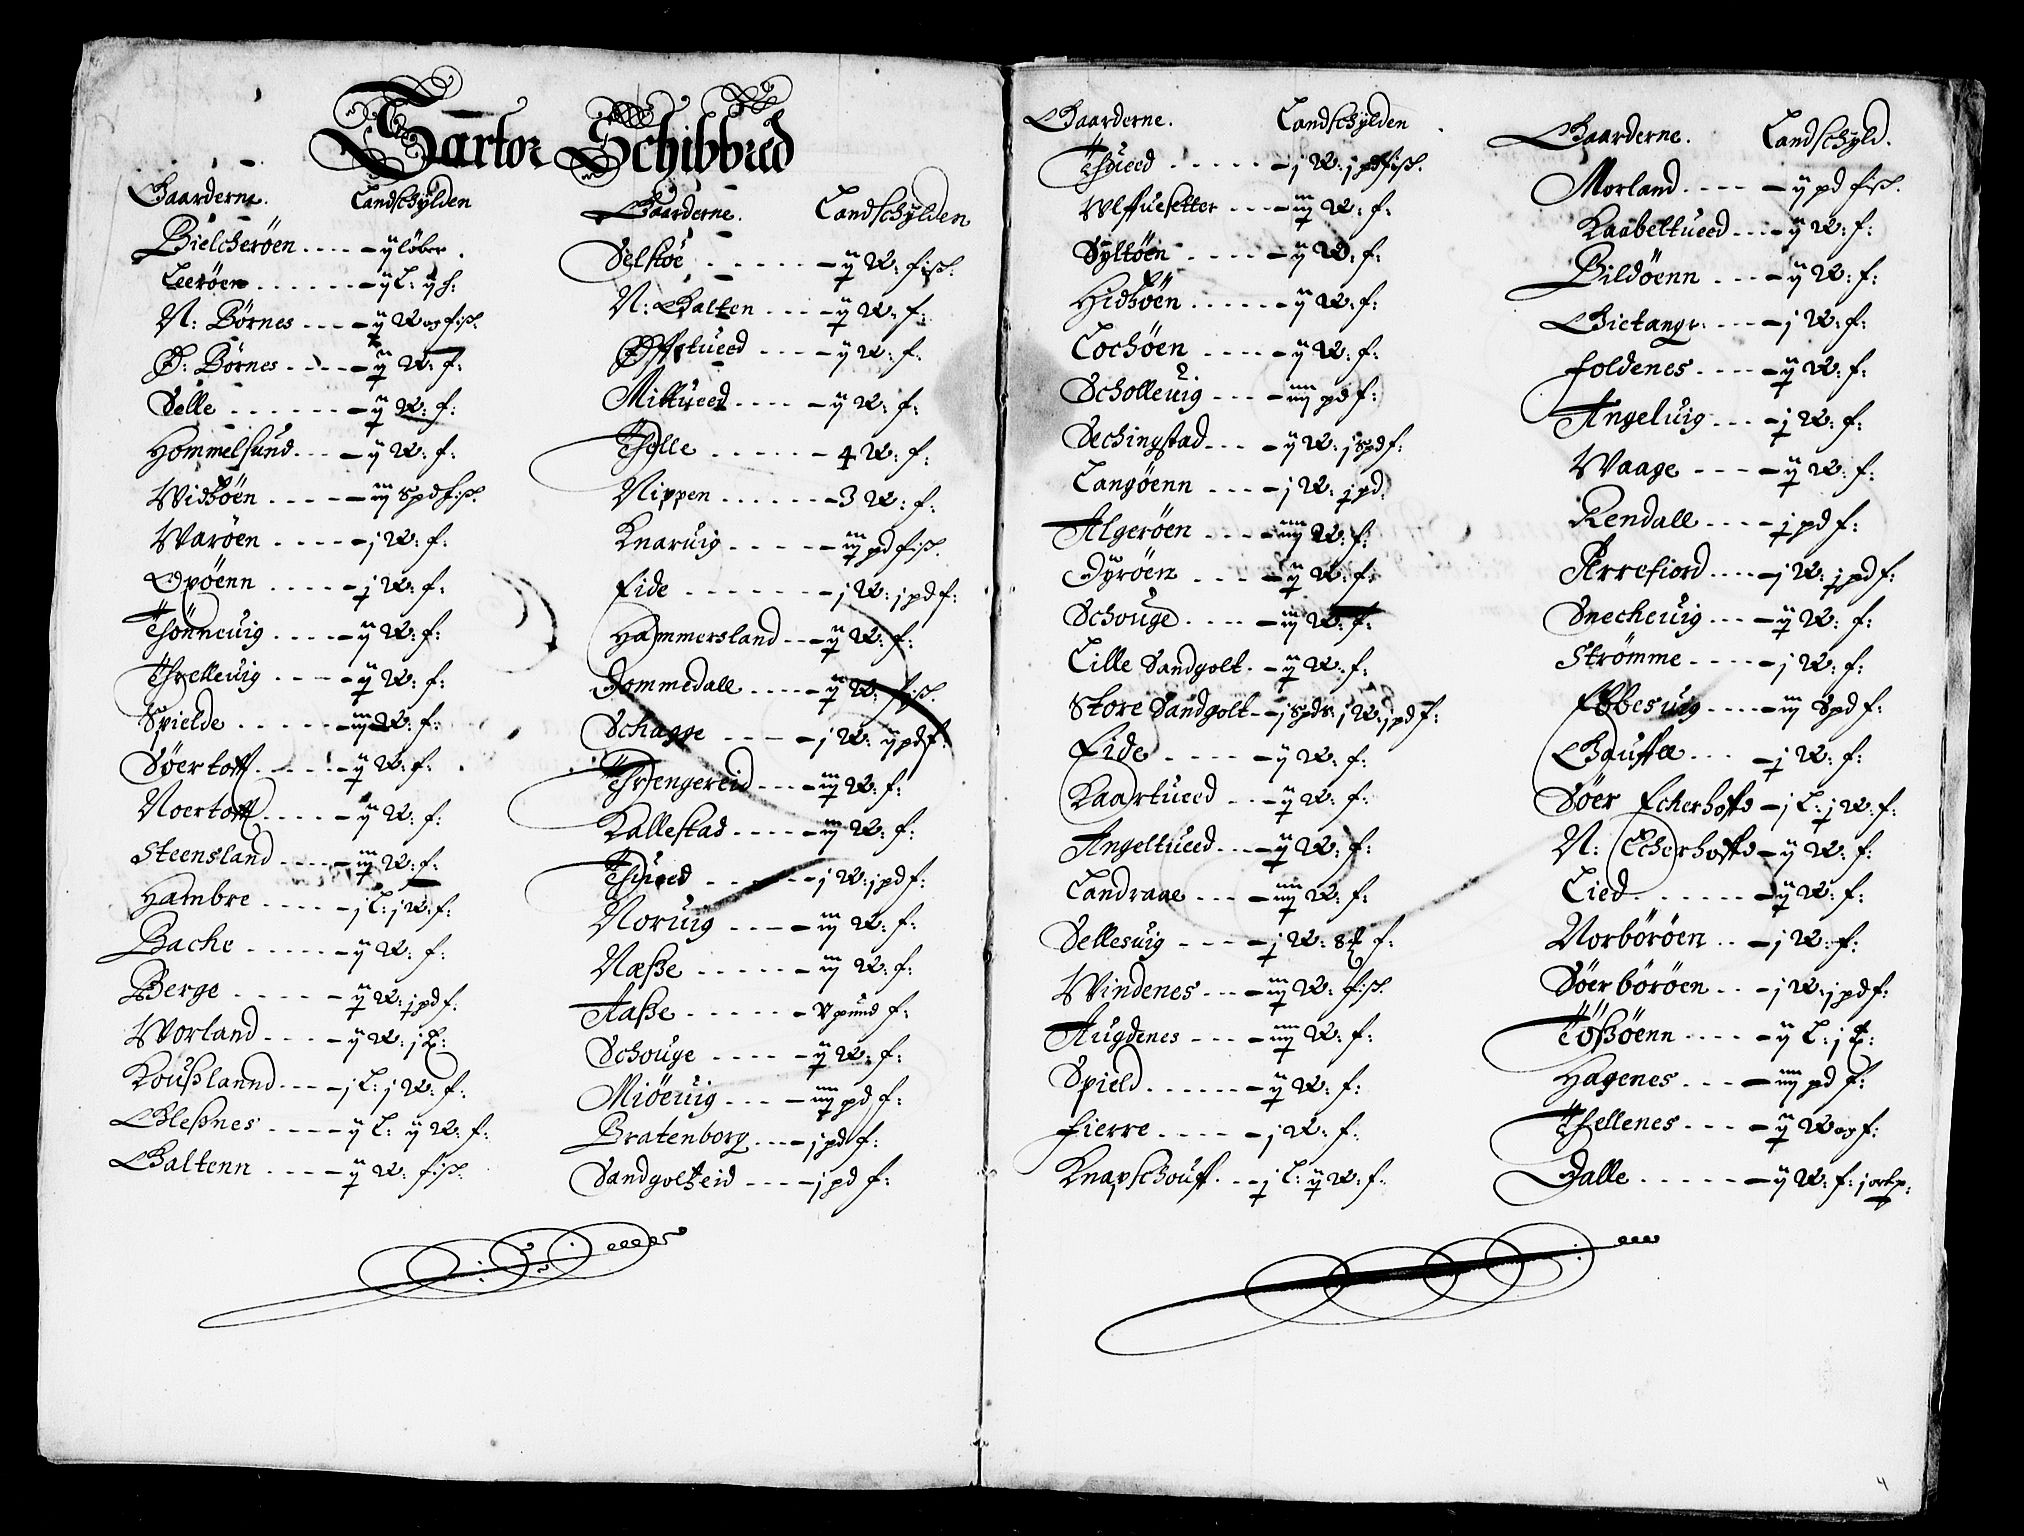 Sartor Schibbred
Gaarderne. Landschÿlden
Bielcheröen .... - ij löber.
Leeröen ...... - ij L: ij h:
N: Börnes ... - ij W og fisk.
Ø: Börnes .... - ij W: f:
Selle ....... - ij W: f:
Hommelsund ... - ij W: f:
Widöen .... - iij Spd fisk.
Waröen ..... - j W: f:
Opöenn .... - j W: f:
Thönneuig .... - ij W: f:
Threlleuig .... - ij W: f:
Spielde ..... - iij W: f:
Söertofft ..... - ij W: f:
Noertofft ..... - ij W: f:
Steensland .... - iij W: f:
Hambre ..... - j L: j W: f:
Bache ..... - ij W: f:
Berge ..... - ij W: j pd f:
Worland .... - ij W: j
Koußlannd ... - j L: j W: f:
Gleßnes .... - ij L: ij W: f:
Galtenn .... - ij W: fisk.
Gaarderne. Landschÿlden
Selstöe ..... - ij W: fisk.
N: Galten ... - ij W: f:
Øffstueed .... - ij W: f:
Miltueed .... - ij W: f:
Tholle ...... - 4 W: f:
Nippen ...... - 3 W: f:
Knaruig ..... - iij pd fisk.
Eide ....... - j W: j pd f:
Hammersland .. - ij W: f:
Dommedall .... - ij W: fisk.
Schagge .... - j W: ij pd f:
Threngereid ... - iij W: f:
Kallestad .... - iij W: f:
Thueed ...... - j W: j pd f:
Noruig .... - iij W: f:
Næße ..... - iij W: f:
Aaße ..... - V pund f:
Schouge .... - ij W: f:
Miöeuig .... - iiij pd f:
Bratenborg ... - j pd f:
Sandgolteid .... - j pd f:
Gaarderne. Landschÿlden
Thueed ..... - j W: j pd fisk.
Wlffuesetter ... - iij W: f:
Syltöen .... - ij W: f:
Hidöen ..... - ij W: f:
Lochöen .... - ij W: f:
Scholleuig ... - iiij pd f:
Sechingstad ... - ij W: j spd f:
Langöenn ... - j W: j pd:
Algeröen .... - iiij W: f:
Dyröen .... - ij W: f:
Schouge .... - iij W: f:
Lille Sandgolt. - ij W: f:
Store Sandgolt - j Spds: j W: j pd f:
Eide .... - ij W: f:
Kaartueed ... - ij W: f:
Angeltueed ... - ij W: f:
Landraae ... - iiij W: f:
Sellesuig .... - j W: f:
Windenes ... - iij W: fisk.
Augdenes ... - iiij W: f:
Spield ...... - ij W: f:
Fierre ..... - j W: f:
Knapschouff .. - j L: ij W: f:
Gaarderne. Landschÿld.
Morland .... - ij pd fisk.
Kaabeltueed ... - ij W: f:
Bildöenn .... - ij W: f:
Gietangr: .... - j W: f:
Foldenes .... - ij W: f:
Angeluig .... - j W: f:
Waage .... - ij W: f:
Rendall .... - j pd f:
Arrefiord .... - j W: j pd f:
Snecheuig ... - ij W: f:
Strömme .... - j W: f:
Ebbesuig .... - iij Spd f:
Gauffæ ... - j W: f:
Söer Echerhoffd - j L: j W: f:
N: Echerhoffd - ij W: f:
Lied ....... - ij W: f:
Norböröen .. - j W: f:
Söerböröen .. - j W: j pd f:
Tößöenn .... - ij L: j
Hagenes ... - iiij pd f:
Thellenes ... - ij W og f:
Dalle ...... - ij W: f: j ortp:
4